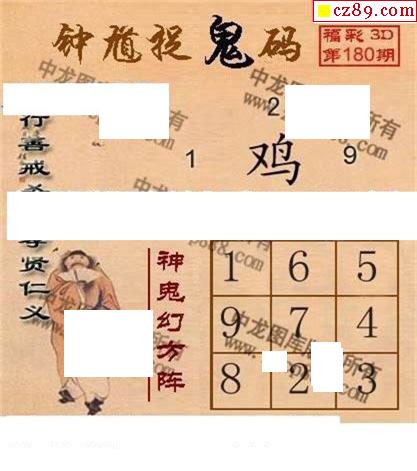 cz89.com
钟馗捉鬼码
福彩3D
第180期
行善戒
贤仁义
2
1 鸡 9
神鬼幻方阵
1 6 5
9 7 4
8 2 3